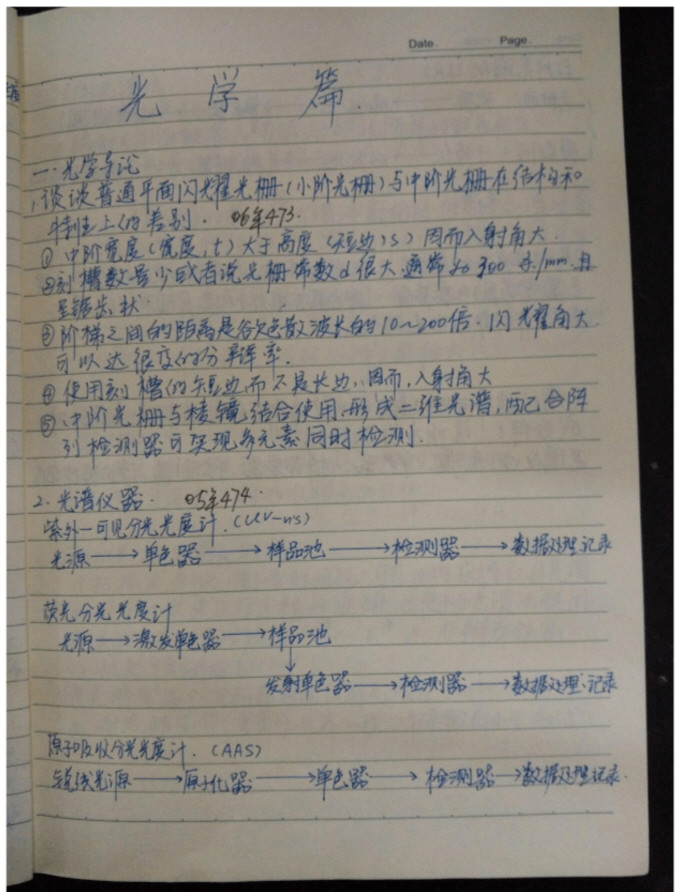 Date. Page.
光学篇.
一.光学导论
1.谈谈普通平面闪耀光栅(小阶光栅)与中阶光栅在结构和
特性上的差别. 06年473.
① 中阶宽度(宽度,t)大于高度(短边,s)因而入射角大.
②刻槽数量少或者说光栅常数d很大.通常 300条/mm.且
呈锯齿状.
③阶梯之间的距离是欲色散波长的10~200倍.闪耀角大.
可以达很高的分辨率.
④ 使用刻槽的短边而不是长边,因而,入射角大
⑤ 中阶光栅与棱镜结合使用.形成二维光谱,配合阵
列检测器可实现多元素同时检测.
2.光谱仪器. 05年474.
紫外-可见分光光度计.(UV-vis)
光源→单色器→样品池→检测器→数据处理记录
荧光分光光度计
光源→激发单色器→样品池
↓
发射单色器→检测器→数据处理记录
原子吸收分光光度计.(AAS)
锐线光源→原子化器→单色器→检测器→数据处理记录.